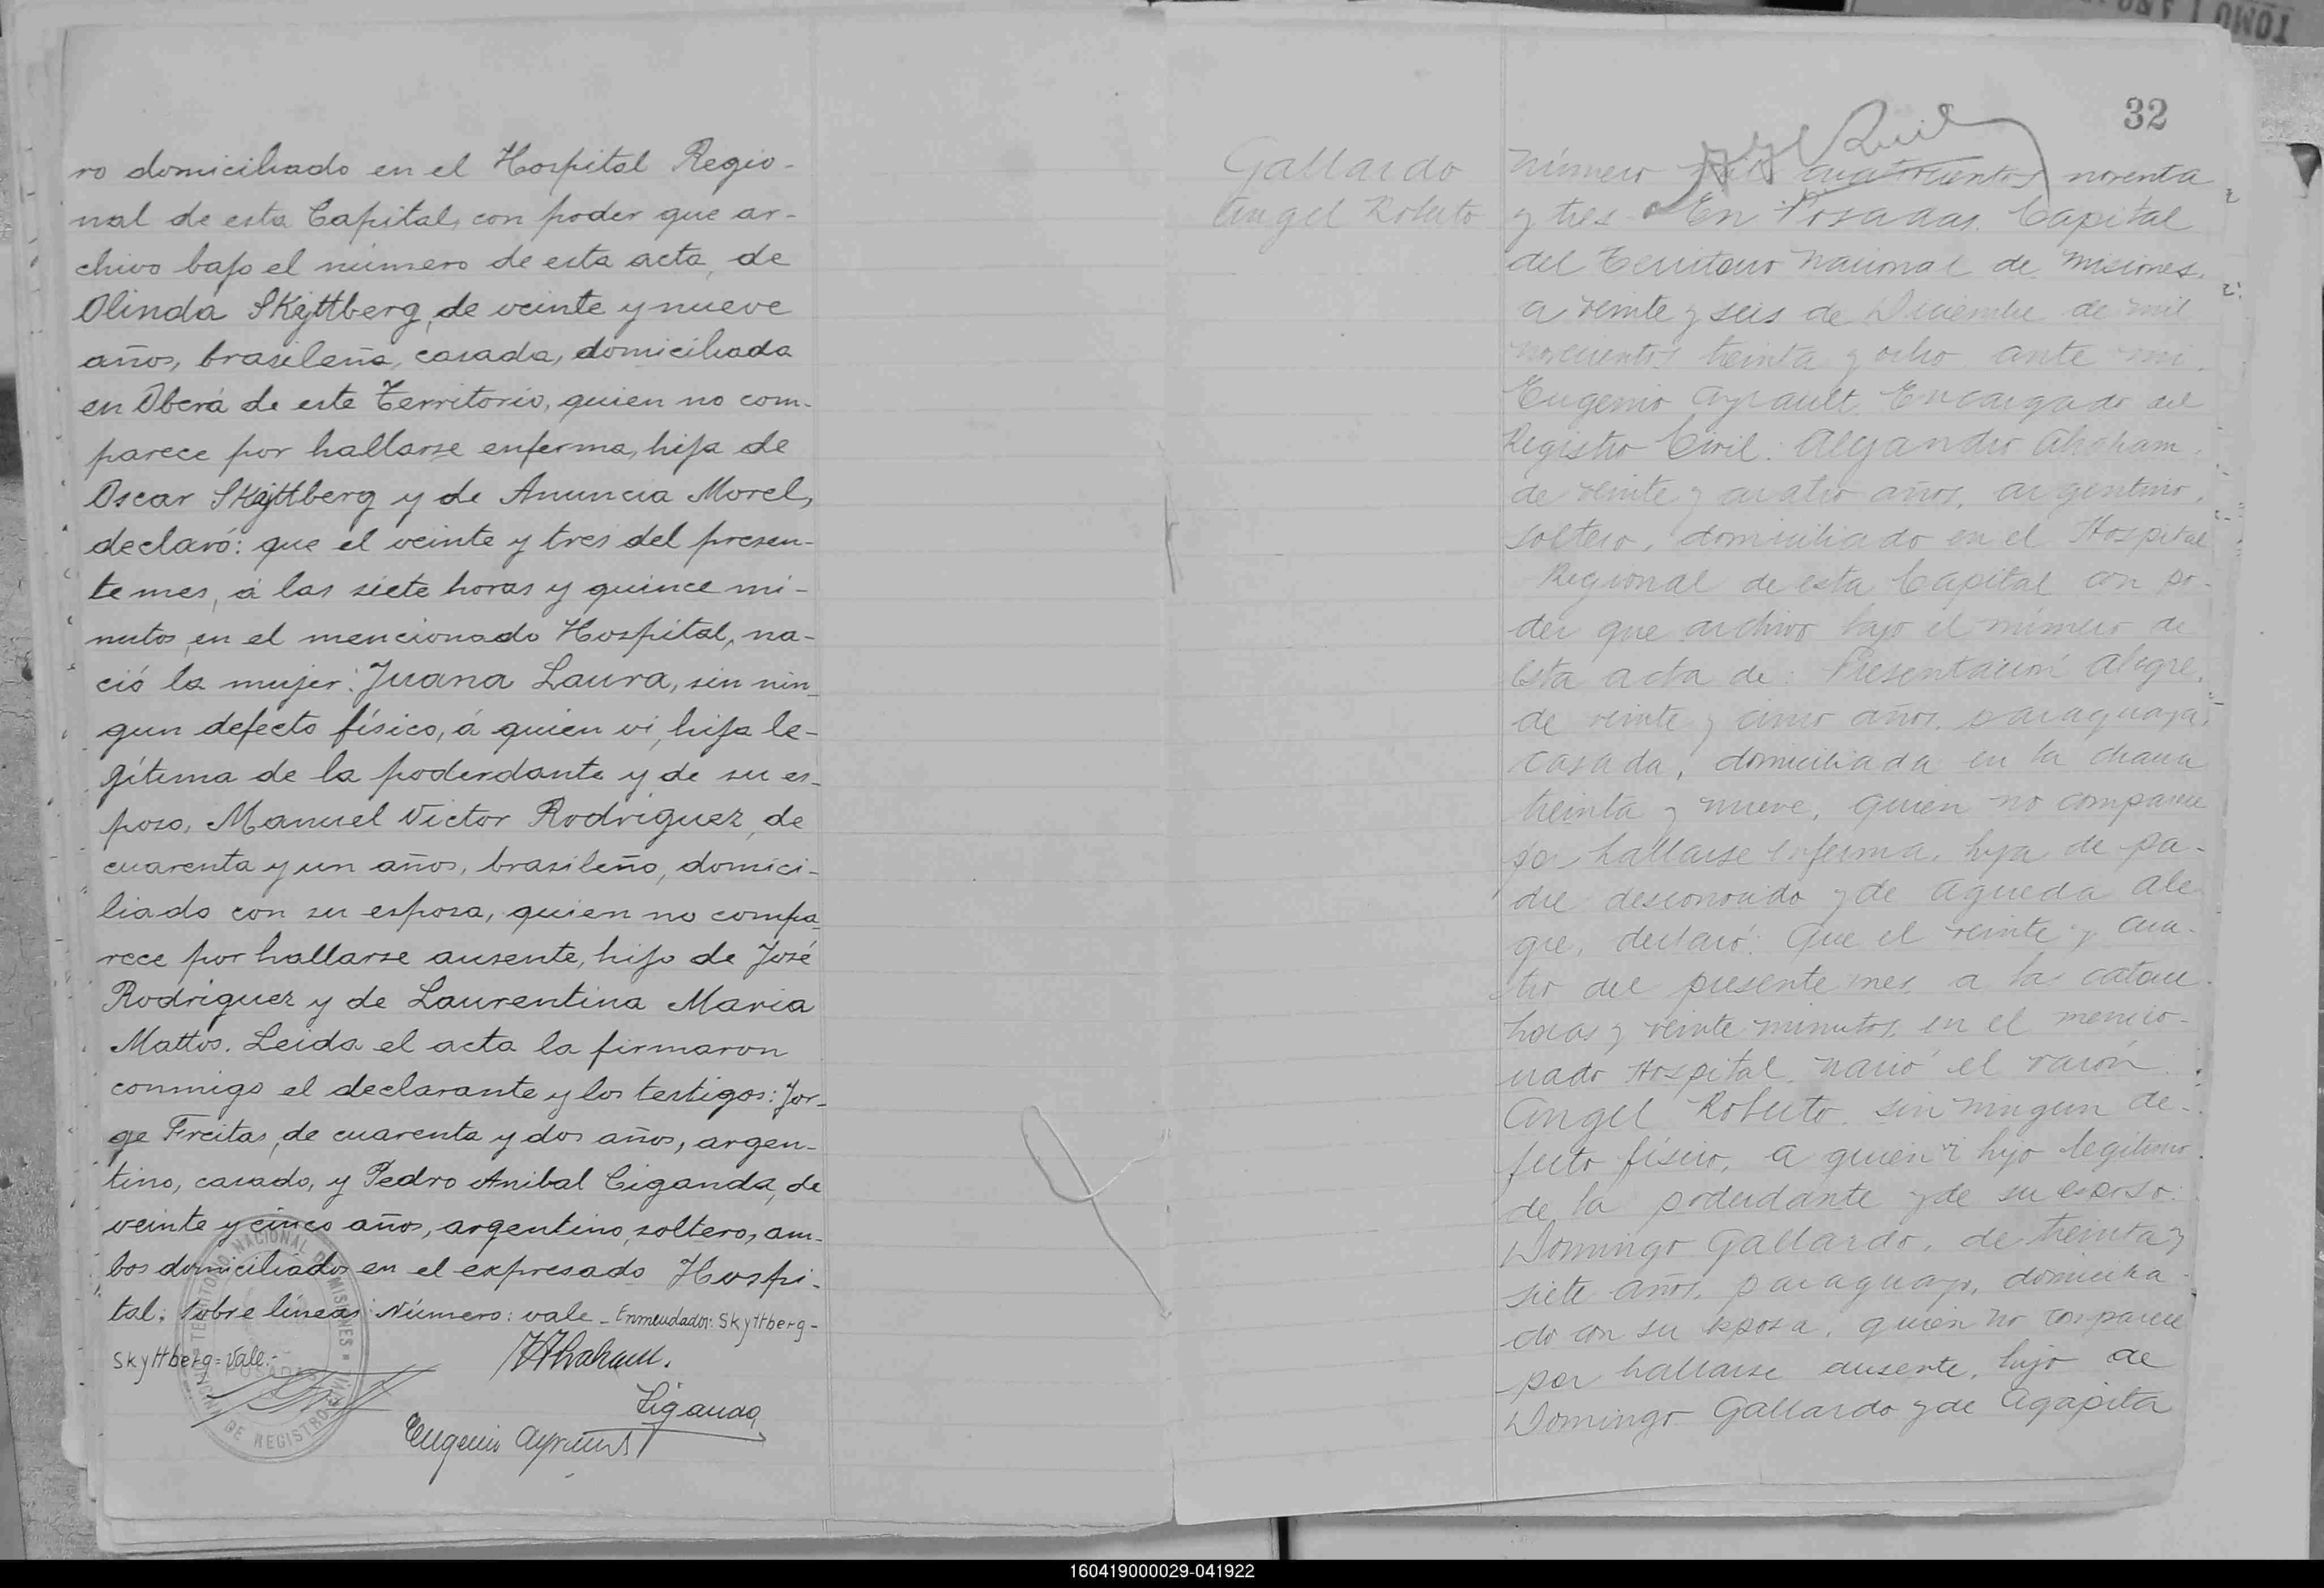 ro domiciliado en el Hospital Regio-
nal de esta Capital, con poder que ar-
chivo bajo el número de esta acta, de
Olinda Skyttberg, de veinte y nueve
años, brasileña, casada, domiciliada
en Oberá de este Territorio, quien no com-
parece por hallarse enferma, hija de
Oscar Skyttberg y de Anuncia Morel,
declaró: que el veinte y tres del presen-
te mes, á las siete horas y quince mi-
nutos, en el mencionado Hospital, na-
ció la mujer: Juana Laura, sin nin-
gun defecto físico, á quien vi, hija le-
gítima de la poderdante y de su es-
poso, Manuel Victor Rodriguez, de
cuarenta y un años, brasileño, domici-
liado con su esposa, quien no compa-
rece por hallarse ausente, hijo de José
Rodriguez y de Laurentina Maria
Mattos. Leida el acta la firmaron
conmigo el declarante y los testigos: Jor-
ge Freitas, de cuarenta y dos años, argen-
tino, casado, y Pedro Anibal Ciganda, de
veinte y cinco años, argentino, soltero, am-
bos domiciliados en el expresado Hospi-
tal. Sobre líneas: Número: vale - Enmendados: Skyttberg -
Skyttberg = Vale.-
AAbraham.
Ciganda
Eugenio Ayrault
TERRITORIO NACIONAL DE MISIONES
POSADAS
DE REGISTRO CIVIL
32
Gallardo
Angel Roberto
Número cuatrocientos noventa
y tres. En Posadas, Capital
del Territorio Nacional de Misiones,
a veinte y seis de Diciembre de mil
novecientos treinta y ocho ante mi
Eugenio Ayrault, Encargado del
Registro Civil: Alejandro Abraham,
de veinte y cuatro años, argentino,
soltero, domiciliado en el Hospital
Regional de esta Capital con po-
der que archivo bajo el número de
esta acta de: Presentación Alegre,
de veinte y cinco años, paraguaya,
casada, domiciliada en la chacra
treinta y nueve, quien no comparece
por hallarse enferma, hija de pa-
dre desconocido y de Agueda Ale-
gre, declaró: Que el veinte y cua-
tro del presente mes, a las catorce
horas y veinte minutos, en el mencio-
nado Hospital, nació el varón
Angel Roberto, sin ningun de-
fecto físico, a quien vi hijo legítimo
de la poderdante y de su esposo:
Domingo Gallardo, de treinta y
siete años, paraguayo, domicilia-
do con su esposa, quien no comparece
por hallarse ausente, hijo de
Domingo Gallardo y de Agapita
160419000029-041922